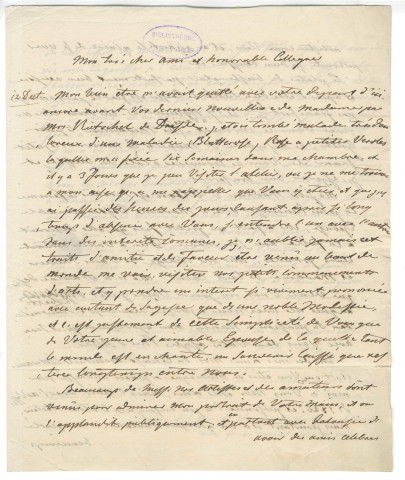 BIBLIOTHÈQUE
Mon très cher Ami et honorable Collegue
12 Dect. Mon bien être m'avait quitté avec votre depart d'ici
avant vos dernier Nouvelles de Madame par
Mr. Rietschel de etois tombé malade très dou
loureux d'une maladie (Blattrose, Rose a petites Veroles
la quelle m'a fixée Six Semaines dans ma chambre, et
il y a 3 Jours que je puis visiter l'atelier, ou je me trouve
a mon aise et, me rappelle que Vous y eties et que j'y
ai passée des heures des jours causant après si long
temps d'absence avec Vous, s'entendre l'un avec l'autre
dans des interets comunes, je n'oublie jamais cet
traits d'amitié et de faveur être venu au bout de
monde me voir, visiter nos petits commencements
d'arts, et y prendre un interet si vivement prononcée
avec autant de sagesse que de une noble Modestie,
et c'est justement de cette Simplicité de Vous que
de Votre jeune et aimable Epouse de la quelle tout
le monde est en chanté, un Souvenir laissé que res
tera longtemps entre Nous.
Beaucoup de nos Artistes et des amateurs sont
venus, pour admirer mon portrait de Votre main, et on
l'applaudit publiquement, en partant avec Jalousie de
avoir des amis celebres